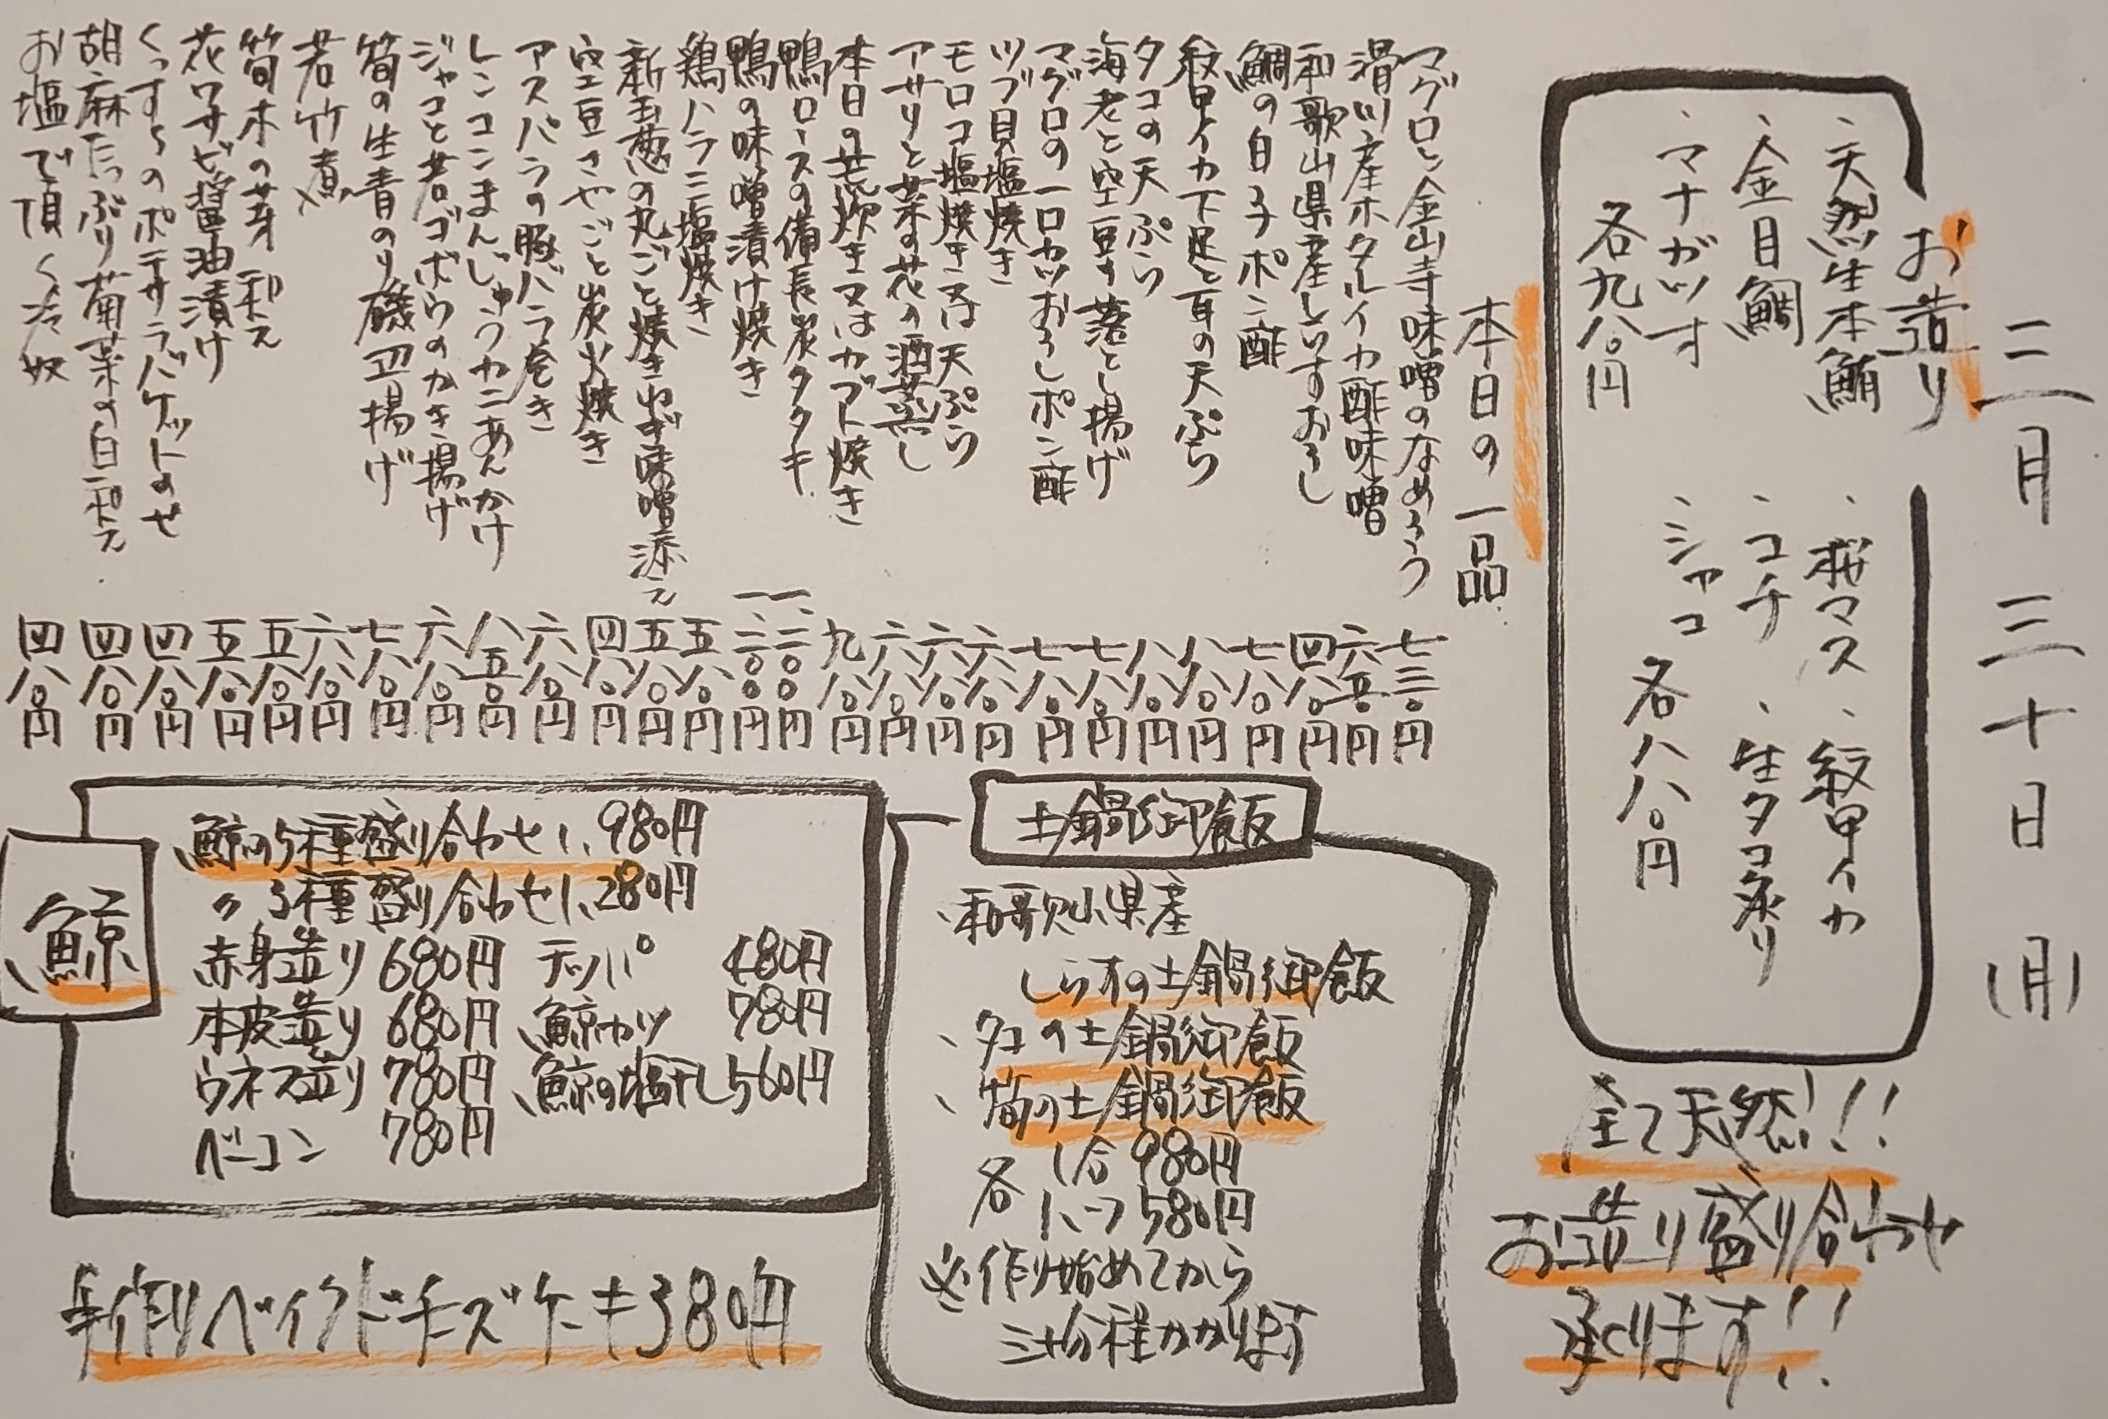 三月三十日(月)
お造り
、天然生本鮪
、金目鯛
、マナガツオ
各九八〇円
、桜マス、紋甲イカ
、コチ、生タコ炙り
、シャコ
各八八〇円
全て天然!!
お造り盛り合わせ
承ります!!
本日の一品
マグロと金山寺味噌のなめろう 七三〇円
滑川産ホタルイカ酢味噌 六五〇円
和歌山県産しらすおろし 四八〇円
鯛の白子ポン酢 七八〇円
紋甲イカ下足と耳の天ぷら 八八〇円
タコの天ぷら 八八〇円
海老と空豆の落とし揚げ 七八〇円
マグロの一口カツおろしポン酢 七八〇円
ツブ貝塩焼き 六八〇円
モロコ塩焼き又は天ぷら 六八〇円
アサリと菜の花の酒蒸し 六八〇円
本日の荒炊き又はカブト焼き 九八〇円
鴨ロースの備長炭タタキ 一、二〇〇円
鴨の味噌漬け焼き 一、二〇〇円
鶏ハラミ塩焼き 五八〇円
新玉葱の丸ごと焼きねぎ味噌添え 五八〇円
空豆さやごと炭火焼き 四八〇円
アスパラの豚バラ巻き 六八〇円
レンコンまんじゅうカニあんかけ 八五〇円
ジャコと若ゴボウのかき揚げ 六八〇円
筍の生青のり磯辺揚げ 七八〇円
若竹煮 六八〇円
筍木の芽和え 五八〇円
花ワサビ醤油漬け 五八〇円
くっすらのポテサラバケットのせ 四八〇円
胡麻たっぷり菊菜の白和え 四八〇円
お塩で頂く冷奴 四八〇円
土鍋御飯
、和歌山県産
しらすの土鍋御飯
、タコの土鍋御飯
、筍の土鍋御飯
各 1合 980円
1、5つ 580円
※作り始めてから
三十分程かかります
鯨
鯨の5種盛り合わせ1、980円
〃 3種盛り合わせ1、280円
赤身造り 680円
本皮造り 680円
ウネス造り 780円
ベーコン 780円
テッパ 480円
鯨カツ 780円
鯨の塩干し 560円
手作りベイクドチーズケーキ380円